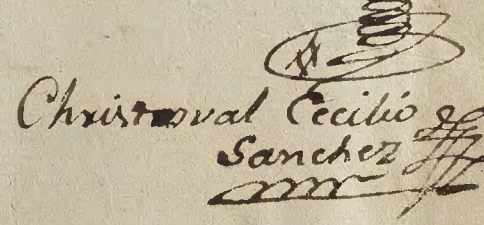 Christoval Cecilio
Sanchez